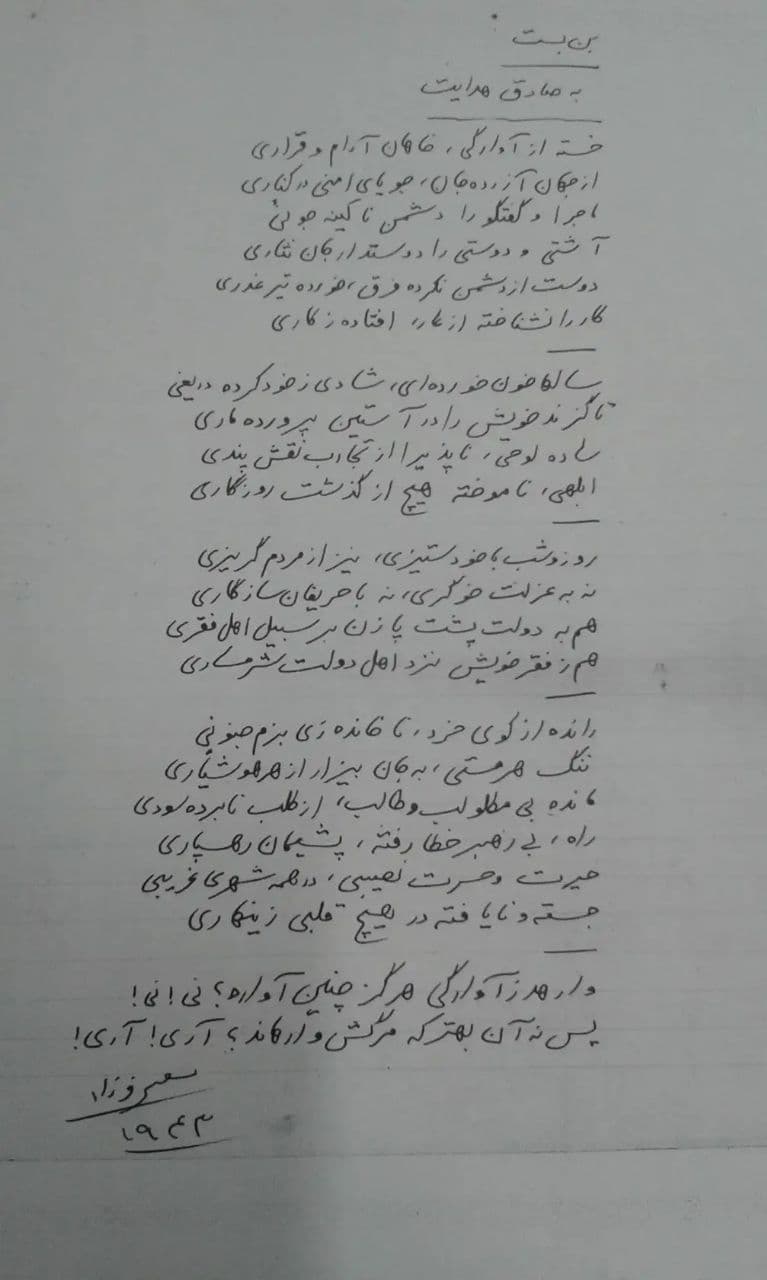 بن بست
به صادق هدایت
خسته از آوارگی، خاهان آرام و قراری
از جهان آزرده جان، جویای امنی در کناری
ماجرا و گفتگو را دشمن نا کینه جوئی
آشتی و دوستی را دوستدار جان نثاری
دوست از دشمن نکرده فرق، خورده تیر غدری
کار را نشناخته از عار، افتاده ز کاری
سالها خون خورده‌ای، شادی ز خود کرده دریغی
تا گزند خویش را در آستین پرورده ماری
ساده لوحی، ناپذیرا از تجارب نقش پندی
ابلهی، ناموخته هیچ از گذشت روزگاری
روز و شب با خود ستیزی، نیز از مردم گریزی
نه به عزلت خوگری، نه با حریفان سازگاری
هم به دولت پشت پا زن بر سبیل اهل فقری
هم ز فقر خویش نزد اهل دولت شرمساری
رانده از کوی خرد، نا خانده زی بزم جنونی
ننگ هر مستی، به جان بیزار از هر هوشیاری
مانده بی مطلوب و طالب، از طلب نابرده سودی
راه، بی رهبر خطا رفته، پشیمان رهسپاری
حیرت و حسرت نصیبی، در همه شهری غریبی
جسته و نایافته در هیچ قلبی زینهاری
وارهد ز آوارگی هرگز چنین آواره؟ نی! نی!
پس نه آن بهتر که مرگش وارهاند؟ آری! آری!
مسعود فرزاد
۱۹۴۳